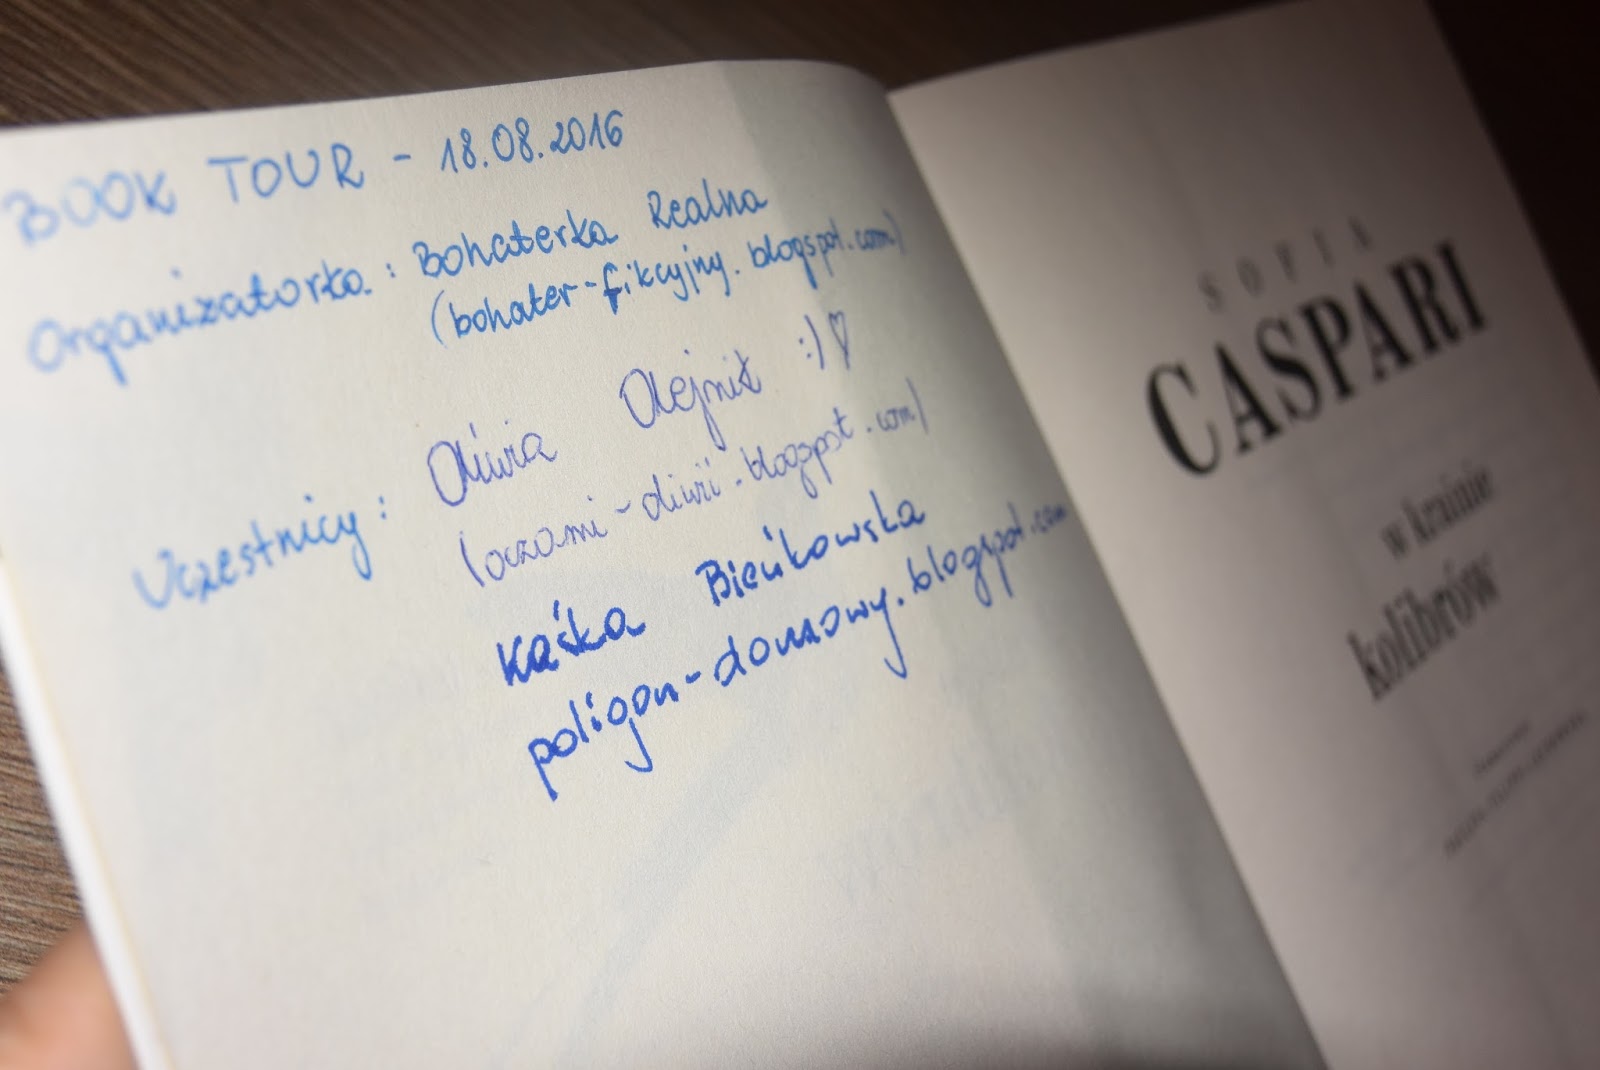 BOOK TOUR - 18.08.2016
Organizatorka: Bohaterka Realna
(bohater-fikcyjny.blogspot.com)
Uczestnicy: Oliwia Olejnik :)♡
(oczami-oliwii.blogspot.com)
Kaśka Bieńkowska
poligon-domowy.blogspot.com
SOFIA
CASPARI
w krainie
kolibrów